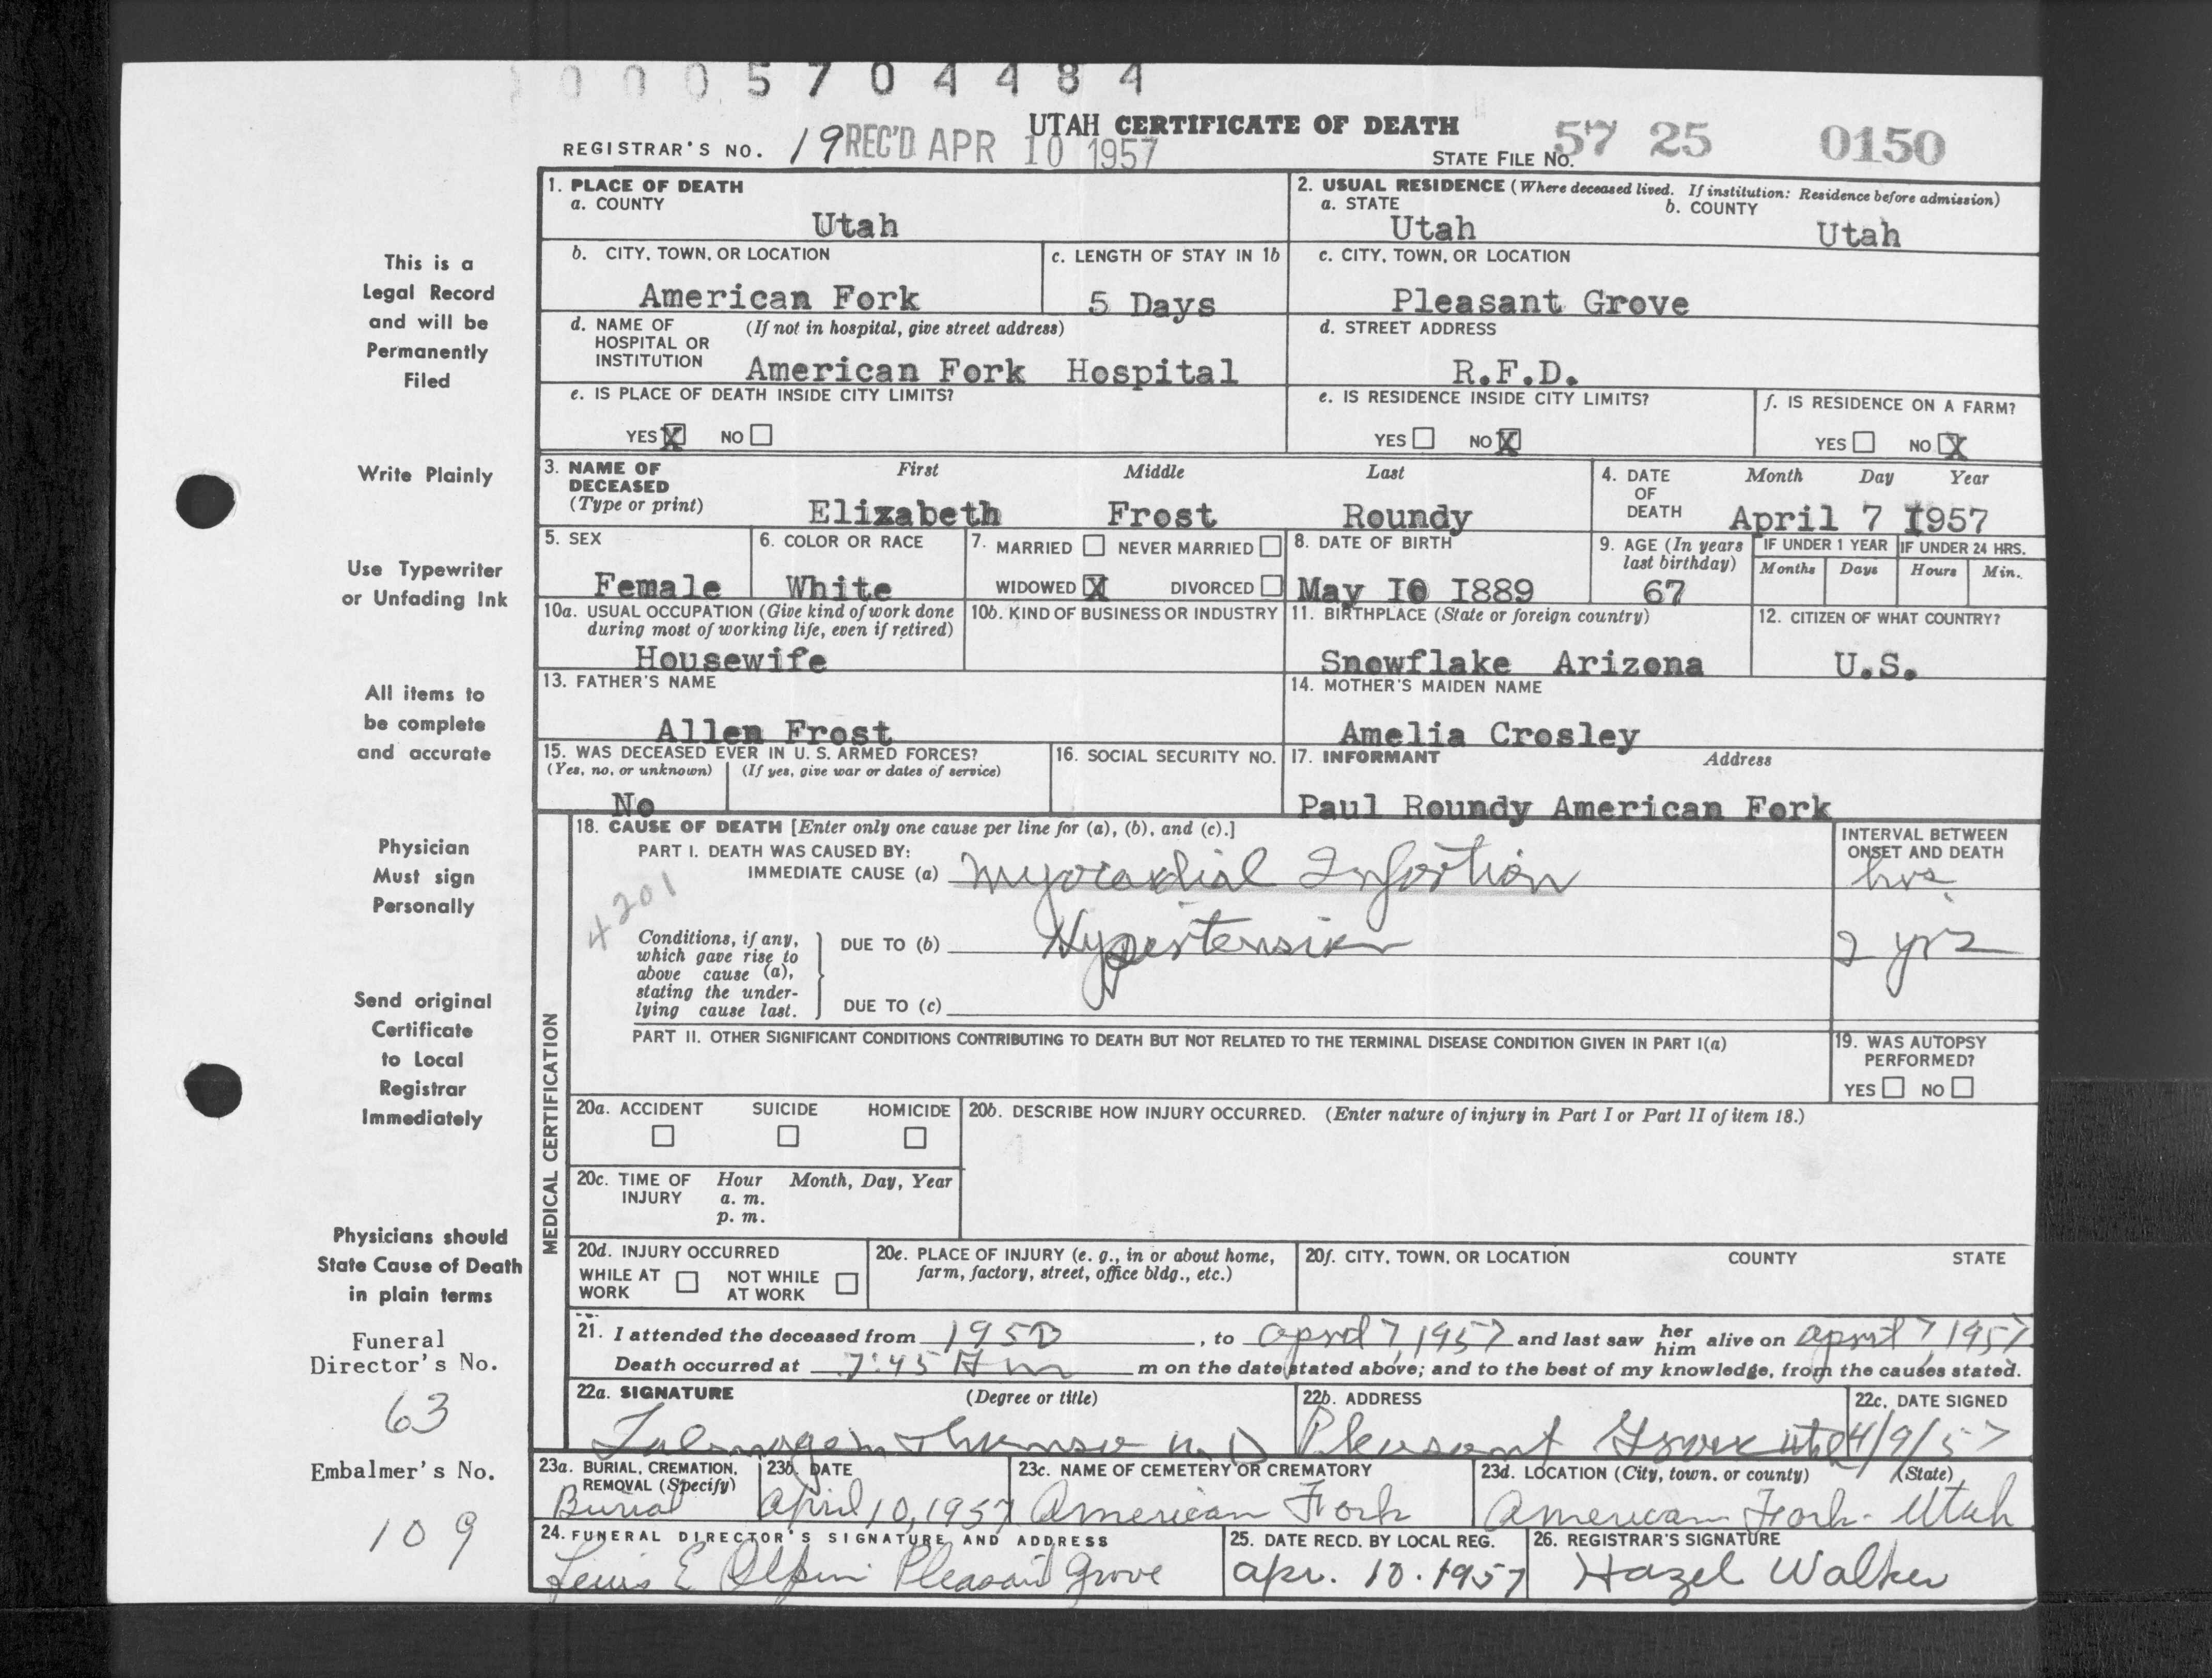 0005704484
UTAH CERTIFICATE OF DEATH
REGISTRAR'S NO. 19 REC'D APR 10 1957
STATE FILE NO. 57 25 0150
1. PLACE OF DEATH
a. COUNTY
Utah
2. USUAL RESIDENCE (Where deceased lived. If institution: Residence before admission)
a. STATE
Utah
b. COUNTY
Utah
b. CITY, TOWN, OR LOCATION
American Fork
c. LENGTH OF STAY IN 1b
5 Days
c. CITY, TOWN, OR LOCATION
Pleasant Grove
d. NAME OF HOSPITAL OR INSTITUTION
(If not in hospital, give street address)
American Fork Hospital
d. STREET ADDRESS
R.F.D.
e. IS PLACE OF DEATH INSIDE CITY LIMITS?
YES X NO
e. IS RESIDENCE INSIDE CITY LIMITS?
YES NO X
f. IS RESIDENCE ON A FARM?
YES NO X
3. NAME OF DECEASED
(Type or print)
First Middle Last
Elizabeth Frost Roundy
4. DATE OF DEATH
Month Day Year
April 7 I957
5. SEX
Female
6. COLOR OR RACE
White
7. MARRIED NEVER MARRIED
WIDOWED X DIVORCED
8. DATE OF BIRTH
May I0 I889
9. AGE (In years last birthday)
67
IF UNDER 1 YEAR
Months Days
IF UNDER 24 HRS.
Hours Min.
10a. USUAL OCCUPATION (Give kind of work done during most of working life, even if retired)
Housewife
10b. KIND OF BUSINESS OR INDUSTRY
11. BIRTHPLACE (State or foreign country)
Snowflake Arizona
12. CITIZEN OF WHAT COUNTRY?
U.S.
13. FATHER'S NAME
Allen Frost
14. MOTHER'S MAIDEN NAME
Amelia Crosley
15. WAS DECEASED EVER IN U. S. ARMED FORCES?
(Yes, no, or unknown) (If yes, give war or dates of service)
No
16. SOCIAL SECURITY NO.
17. INFORMANT Address
Paul Roundy American Fork
MEDICAL CERTIFICATION
18. CAUSE OF DEATH [Enter only one cause per line for (a), (b), and (c).]
PART I. DEATH WAS CAUSED BY:
IMMEDIATE CAUSE (a) Myocardial Infortion
4201
INTERVAL BETWEEN ONSET AND DEATH
hrs.
Conditions, if any, which gave rise to above cause (a), stating the underlying cause last.
DUE TO (b) Hypertension
2 yrs
DUE TO (c)
PART II. OTHER SIGNIFICANT CONDITIONS CONTRIBUTING TO DEATH BUT NOT RELATED TO THE TERMINAL DISEASE CONDITION GIVEN IN PART I(a)
19. WAS AUTOPSY PERFORMED?
YES NO
20a. ACCIDENT SUICIDE HOMICIDE
20b. DESCRIBE HOW INJURY OCCURRED. (Enter nature of injury in Part I or Part II of item 18.)
20c. TIME OF INJURY
Hour Month, Day, Year
a. m.
p. m.
20d. INJURY OCCURRED
WHILE AT WORK NOT WHILE AT WORK
20e. PLACE OF INJURY (e. g., in or about home, farm, factory, street, office bldg., etc.)
20f. CITY, TOWN, OR LOCATION COUNTY STATE
21. I attended the deceased from 1950, to April 7, 1957 and last saw her him alive on April 7, 1957
Death occurred at 7:45 A m m on the date stated above; and to the best of my knowledge, from the causes stated.
22a. SIGNATURE (Degree or title)
M.D
22b. ADDRESS
Pleasant Grove Utah
22c. DATE SIGNED
4/9/57
23a. BURIAL, CREMATION, REMOVAL (Specify)
Burial
23b. DATE
April 10, 1957
23c. NAME OF CEMETERY OR CREMATORY
American Fork
23d. LOCATION (City, town, or county) (State)
American Fork - Utah
24. FUNERAL DIRECTOR'S SIGNATURE AND ADDRESS
Lewis E Olpin Pleasant Grove
25. DATE RECD. BY LOCAL REG.
Apr. 10. 1957
26. REGISTRAR'S SIGNATURE
Hazel Walker
This is a
Legal Record
and will be
Permanently
Filed
Write Plainly
Use Typewriter
or Unfading Ink
All items to
be complete
and accurate
Physician
Must sign
Personally
Send original
Certificate
to Local
Registrar
Immediately
Physicians should
State Cause of Death
in plain terms
Funeral
Director's No.
63
Embalmer's No.
109